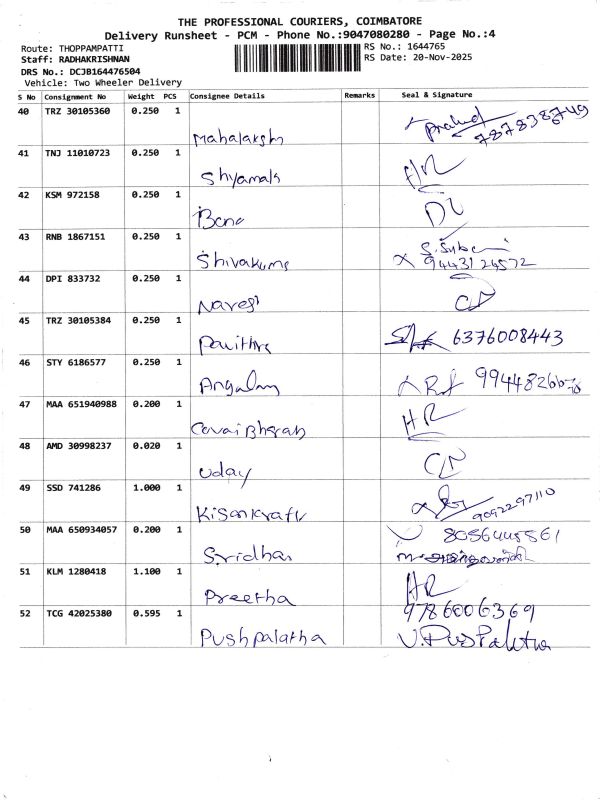 THE PROFESSIONAL COURIERS, COIMBATORE
Delivery Runsheet - PCM - Phone No.:9047080280 - Page No.:4
Route: THOPPAMPATTI
RS No.: 1644765
Staff: RADHAKRISHNAN
RS Date: 20-Nov-2025
DRS No.: DCJB164476504
Vehicle: Two Wheeler Delivery
S No Consignment No Weight PCS Consignee Details Remarks Seal & Signature
40 TRZ 30105360 0.250 1
Mahalakshi 787838749
41 TNJ 11010723 0.250 1
Shyamala HR
42 KSM 972158 0.250 1
Bana DL
43 RNB 1867151 0.250 1
Shivakumg 9443124572
44 DPI 833732 0.250 1
Naresh CN
45 TRZ 30105384 0.250 1
Pavithra 6376008443
46 STY 6186577 0.250 1
Angalam
47 MAA 651940988 0.200 1
Covai Bharath HR
48 AMD 30998237 0.020 1
Uday CN
49 SSD 741286 1.000 1
Kisankraft 9092297110
50 MAA 650934057 0.200 1
Sridhar 8056445561
51 KLM 1280418 1.100 1
Preetha HR
52 TCG 42025380 0.595 1
9786006369
Pushpalatha V. Puspalatha